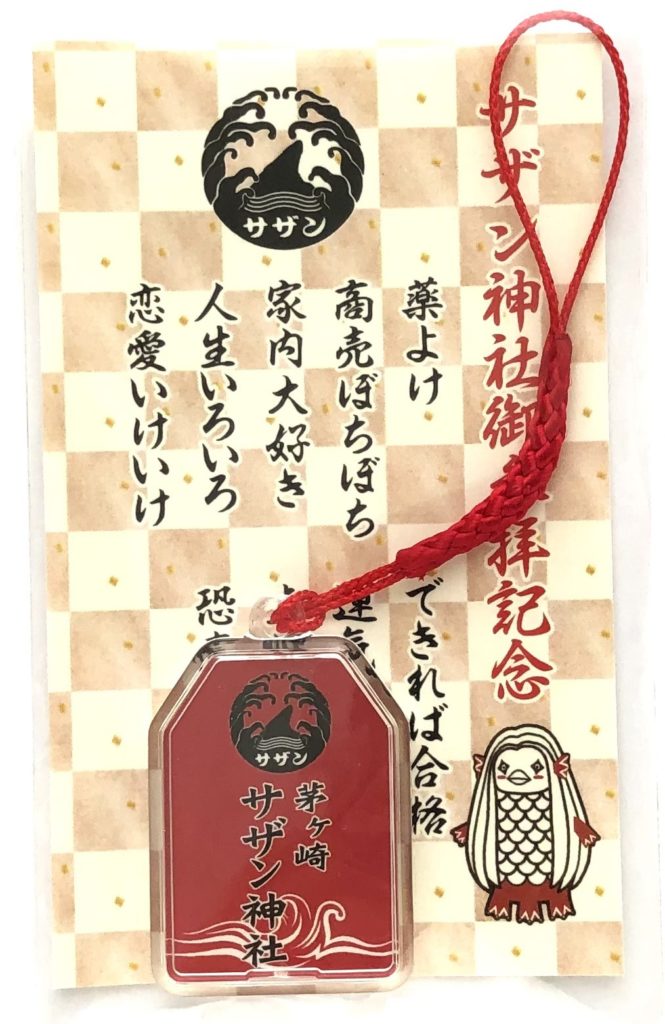 サザン
サザン神社御参拝記念
薬よけ
商売ぼちぼち
家内大好き
人生いろいろ
恋愛いけいけ
できれば合格
運気
恐
サザン
茅ヶ崎
サザン神社